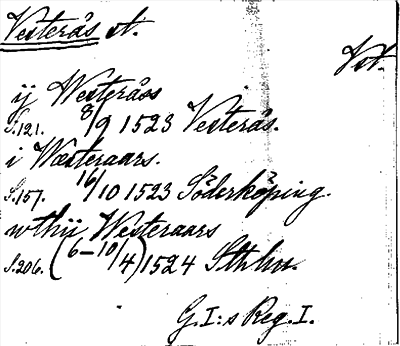 Vesterås st.
Vst.
ij Westeråss
S.121. 8/9 1523 Vesterås.
i Wæsteraars.
S.157. 16/10 1523 Söderköping.
wthij Westeraars
S.206. (6–10/4) 1524 Sthlm.
G.I:s Reg. I.